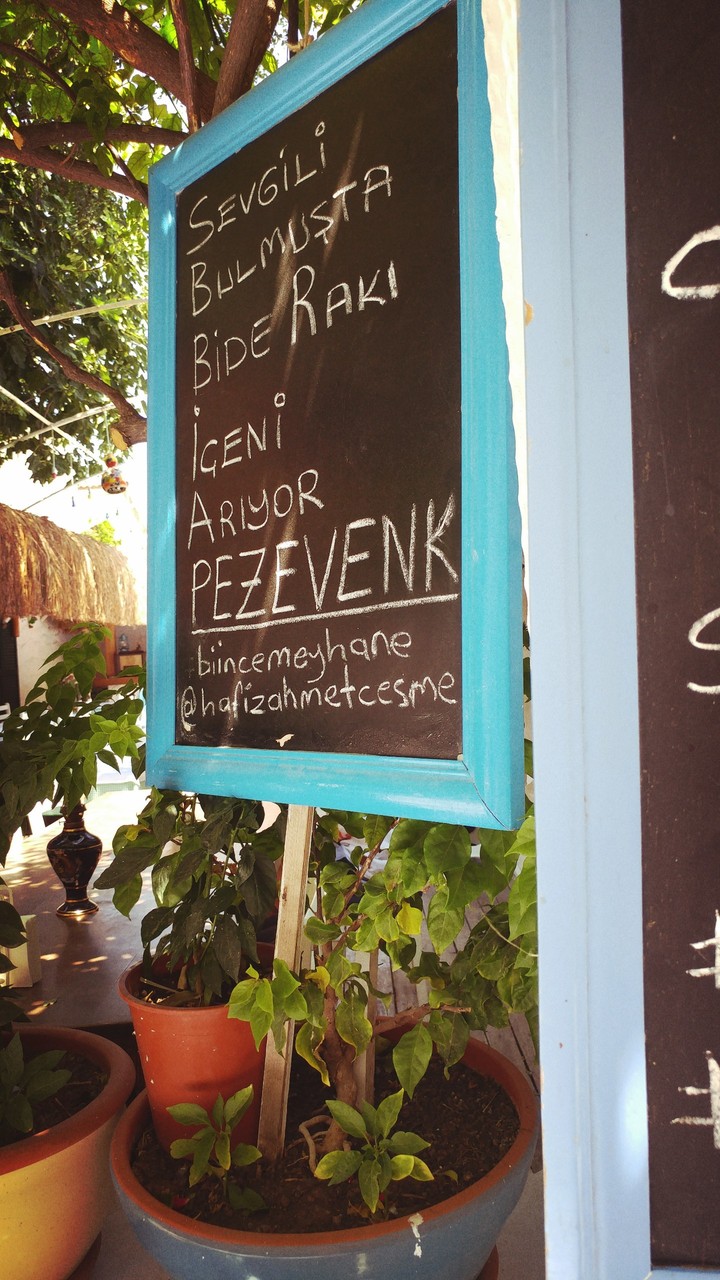 SEVGİLİ
BULMUŞTA
BiDE RAKI
İÇENİ
ARIYOR
PEZEVENK
#biincemeyhane
@hafizahmetcesme